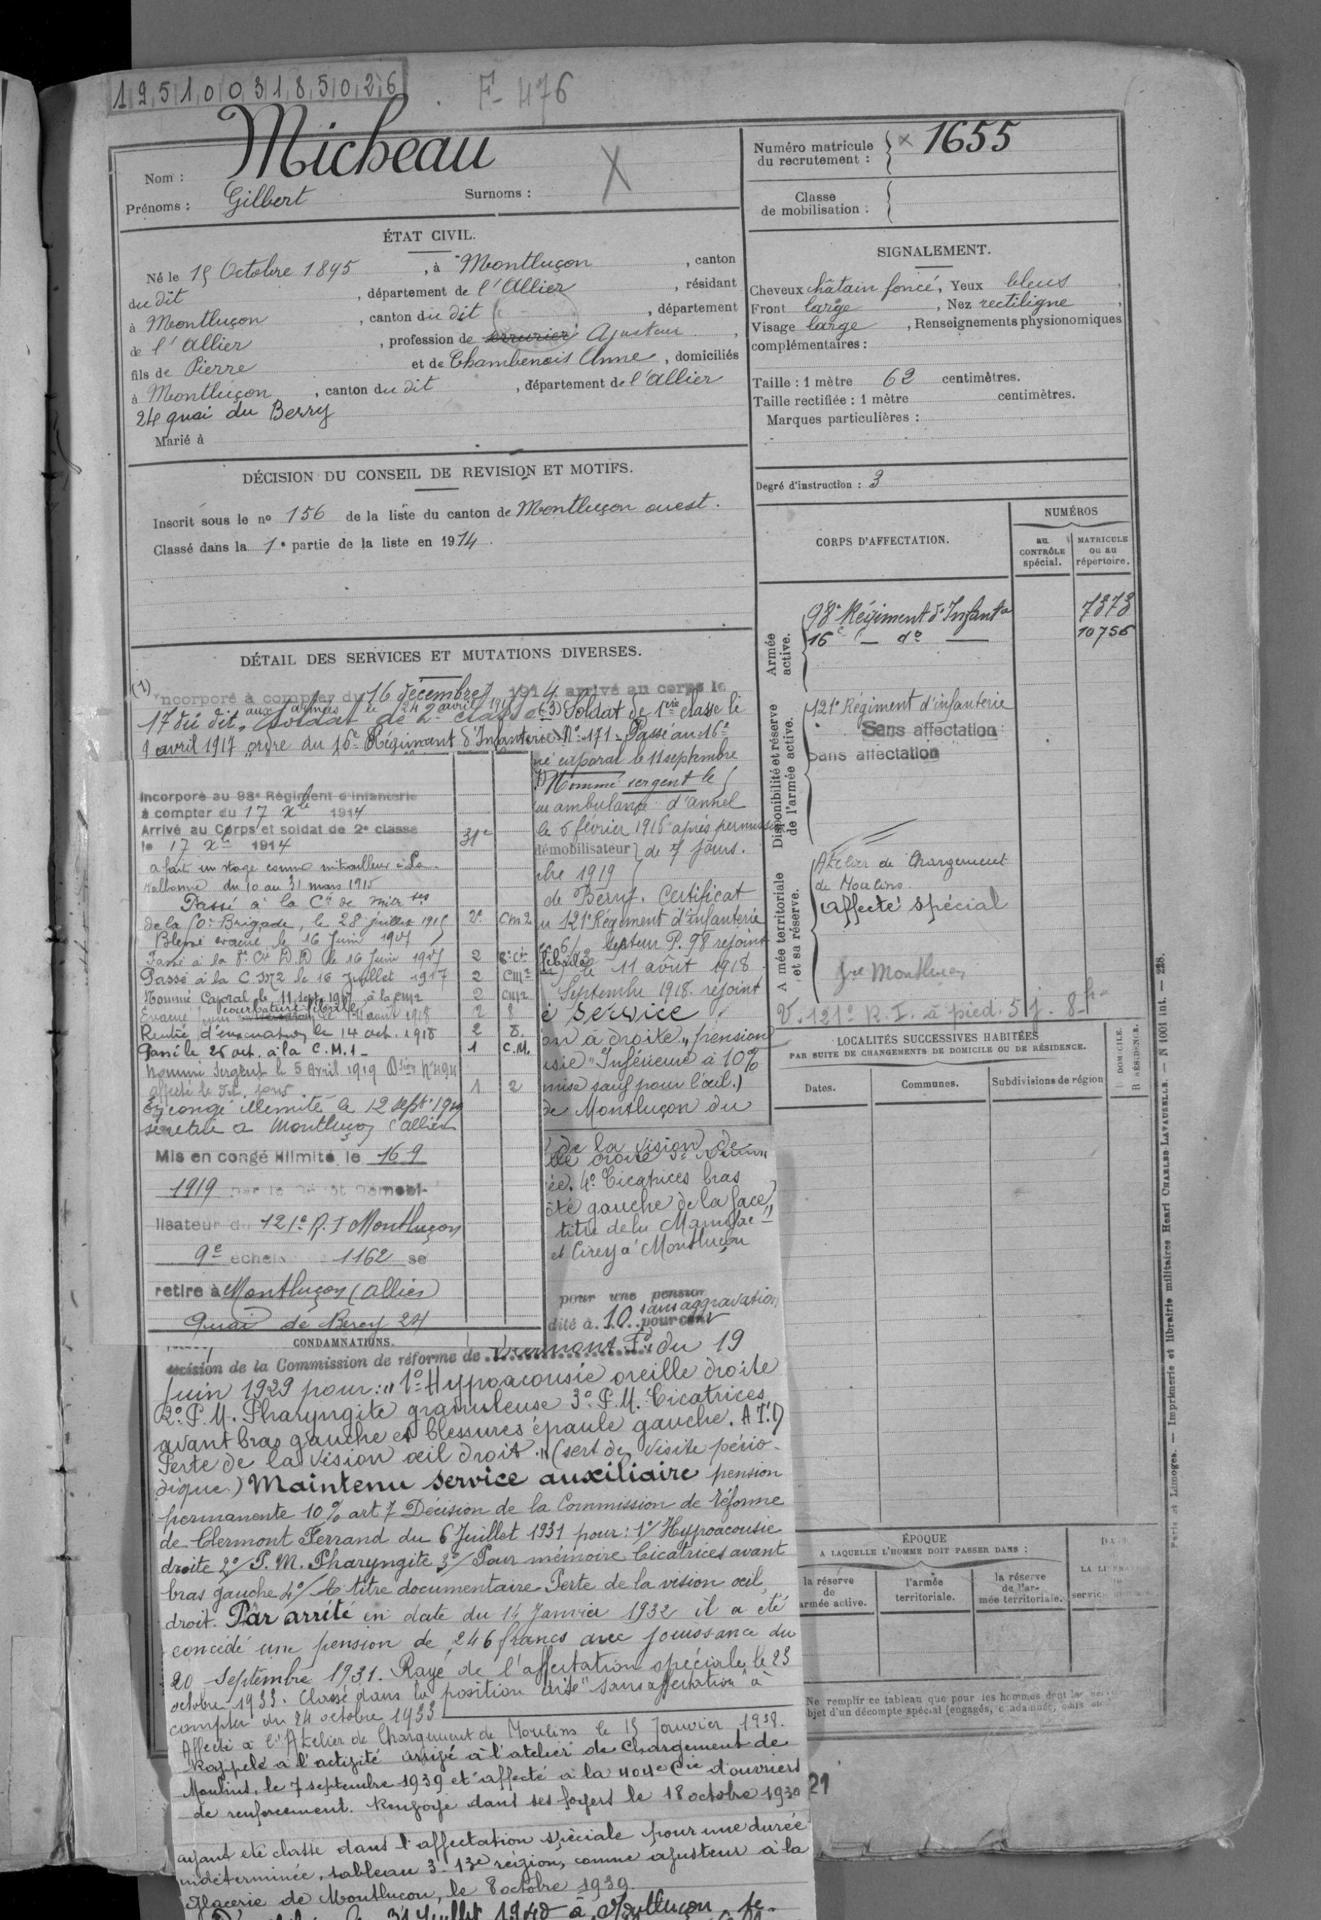 1951003185026
F-476
Nom : Micheau
Prénoms : Gilbert Surnoms :
X
Numéro matricule du recrutement : x 1655
Classe de mobilisation :
ÉTAT CIVIL.
Né le 15 Octobre 1895, à Montluçon, canton
du dit, département de l'Allier, résidant
à Montluçon, canton du dit, département
de l'Allier, profession de Ajusteur,
fils de Pierre et de Chambenois Anne, domiciliés
à Montluçon, canton du dit, département de l'Allier
24 quai du Berry
Marié à
SIGNALEMENT.
Cheveux châtain foncé, Yeux bleus,
Front large, Nez rectiligne,
Visage large, Renseignements physionomiques
complémentaires :
Taille : 1 mètre 62 centimètres.
Taille rectifiée : 1 mètre centimètres.
Marques particulières :
Degré d'instruction : 3
DÉCISION DU CONSEIL DE REVISION ET MOTIFS.
Inscrit sous le no 156 de la liste du canton de Montluçon ouest.
Classé dans la 1e partie de la liste en 1914.
CORPS D'AFFECTATION.
NUMÉROS
au CONTRÔLE spécial.
MATRICULE ou au répertoire.
Armée active.
98e Régiment d'Infantie 7373
16e — do — 10756
Disponibilité et réserve de l'armée active.
121e Régiment d'infanterie
Sans affectation
Sans affectation
Armée territoriale et sa réserve.
Atelier de Chargement
de Moulins.
affecté spécial
V. 121e R.I. à pied. 5 j. 8 fr
DÉTAIL DES SERVICES ET MUTATIONS DIVERSES.
(1) Incorporé à compter du 16 décembre 1914 arrivé au corps le
17 du dit, soldat de 2e classe (3) Soldat de 1ère classe le
aux armées le 24 avril
1 avril 1917 ordre du 16e Régiment d'Infanterie No 171 - Passé au 16e
né caporal le 11 septembre
Nommé sergent le 5
ambulance d'annel
le 6 février 1916 après permission
démobilisateur de 7 jours.
bre 1919
de Berry. Certificat
u 121e Régiment d'infanterie
Secteur P. 98 rejoint
le 11 août 1918
Septembre 1918. rejoint
é service
on à droite, pension
sie "Inférieure à 10%
mise sauf pour l'œil.)
de Montluçon du
Incorporé au 98e Régiment d'Infanterie
à compter du 17 Xbre 1914
Arrivé au Corps et soldat de 2e classe
le 17 Xbre 1914 31e
a fait un stage comme mitrailleur à La
Valbonne du 10 au 31 mars 1915
Passé à la Cie de mitr ses
de la 60e Brigade, le 28 juillet 1915 2e Cm2
Blessé évacué le 16 Juin 1917
Passé à la 8e Cie D.D le 16 Juin 1917 2 8e Cie
Passé à la C.M2 le 16 Juillet 1917 2 Cm2
Nommé Caporal le 11 sept 1917 à la Cm2 2 Cm2
courbature fébrile
Évacué le 11 août 1918 2 8
Rentré d'évacuation le 14 oct. 1918 2 8.
Passé le 25 oct. à la C.M.1 - 1 C.M.
Nommé Sergent le 5 Avril 1919 Don N°494
affecté le dit jour 1 2
En congé illimité le 12 septbre 1919
se retire à Montluçon l'Allier
Mis en congé illimité le 16 9
1919 par le Dépôt Démobi-
lisateur du 121e R.I Montluçon
9e échelon 1162 se
retire à Montluçon (Allier)
Quai de Bercy 24
de la vision de
ée. 4o Cicatrices bras
ôté gauche de la face
titre de la Manufac
et Cirey à Montluçon
pour une pension
sans aggravation
dité à 10 pour cent
CONDAMNATIONS.
décision de la Commission de réforme de Clermont Fd du 19
Juin 1929 pour : "1o Hypoacousie oreille droite
2o P.M. Pharyngite granuleuse 3o P.M. Cicatrices
avant bras gauche et blessures épaule gauche. A T.D
Perte de la vision œil droit." (sert de visite pério-
dique.) Maintenu service auxiliaire pension
permanente 10% art 7 Décision de la Commission de réforme
de Clermont Ferrand du 6 Juillet 1931 pour : 1o/ Hypoacousie
droite 2o/ P.M. Pharyngite 3o/ Pour mémoire Cicatrices avant
bras gauche 4o/ A titre documentaire Perte de la vision œil
droit. Par arrêté en date du 14 Janvier 1932 il a été
concédé une pension de 246 francs avec jouissance du
20 septembre 1931. Rayé de l'affectation spéciale le 23
octobre 1933. Classé dans la position dite "sans affectation" à
compter du 24 octobre 1933
Affecté à l'Atelier de Chargement de Moulins le 15 Janvier 1938.
Rappelé à l'activité arrivé à l'atelier de Chargement de
Moulins, le 7 septembre 1939 et affecté à la 404e Cie d'ouvriers
de renforcement. Renvoyé dans ses foyers le 18 octobre 1939
ayant été classé dans l'affectation spéciale pour une durée
indéterminée, tableau 3 - 13e région, comme ajusteur à la
Glacerie de Montluçon, le 8 octobre 1939.
le 31 Juillet 1940 à Montluçon
21
LOCALITÉS SUCCESSIVES HABITÉES
PAR SUITE DE CHANGEMENTS DE DOMICILE OU DE RÉSIDENCE.
Dates.
Communes.
Subdivisions de région
D DOMICILE.
R RÉSIDENCE.
ÉPOQUE
A LAQUELLE L'HOMME DOIT PASSER DANS :
la réserve de armée active.
l'armée territoriale.
la réserve de l'ar- mée territoriale.
Ne remplir ce tableau que pour les hommes dont
bjet d'un décompte spécial (engagés,
Paris et Limoges. — Imprimerie et librairie militaires Henri CHARLES-LAVAUZELLE. — N 1001 int. — 228.